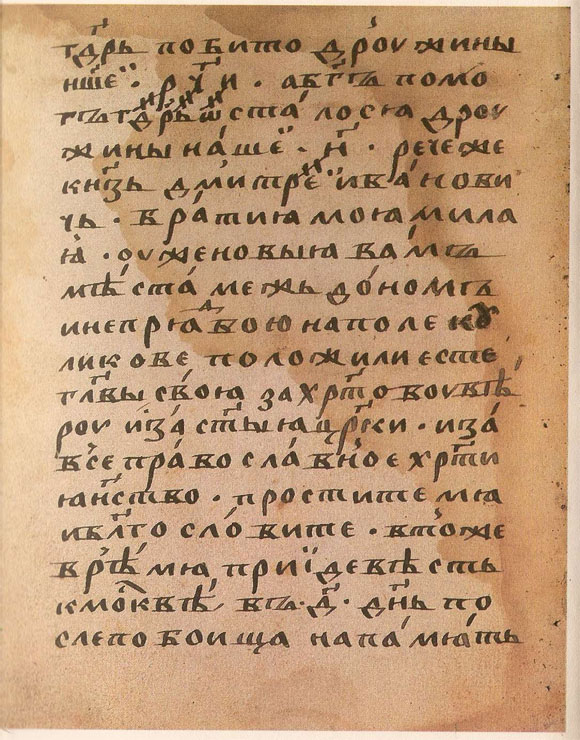 гд҃рь побито дроужины
нш҃еи . рѯ҃и . а бг҃ъ помо
гъ гд҃рь ѿсталосꙗ дроу
жины нашеи . н҃ . рече же
кнз҃ь дмитреи иванови
чь . братиꙗ моꙗ мила
ꙗ . оуже новыꙗ вамъ
мѣста межь дономъ
и непрꙗдвою на поле кꙋ
ликове положили есте
гл҃вы своꙗ за хрт҃овоу вѣ
роу и за ст҃ыꙗ црк҃ви . и за
все православное хрт҃и
ꙗнство . простите мꙗ
и бл҃гословите . в тоже
врѣмꙗ приїде вѣсть
к москвѣ въ . д҃ . дн҃ь по
сле побоища на памꙗть